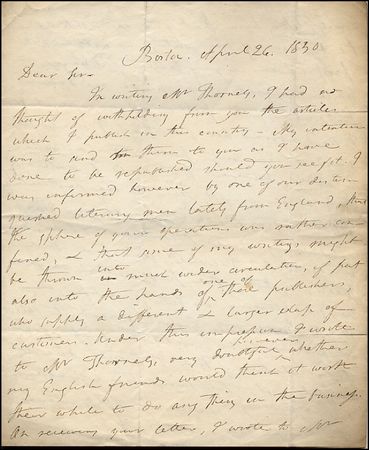 Boston. April 26. 1830
Dear Sir -
In writing Mr Thornely, I had no
thought of withholding from you the articles
which I publish in this country - My intention
was to send them to you as I have
done to be republished should you see fit. I
was informed however by one of our distin-
guished literary men lately from England, that
the sphere of your operations was rather con-
fined, & that some of my writings might
be thrown into much wider circulation, if put
also into the hands of one of those publishers,
who supply a different & larger class of
customers. Under this impression I wrote
to Mr Thornely, very doubtful however whether
my English friends would think it worth
their while to do any thing in the business.
On receiving your letter, I wrote to Mr